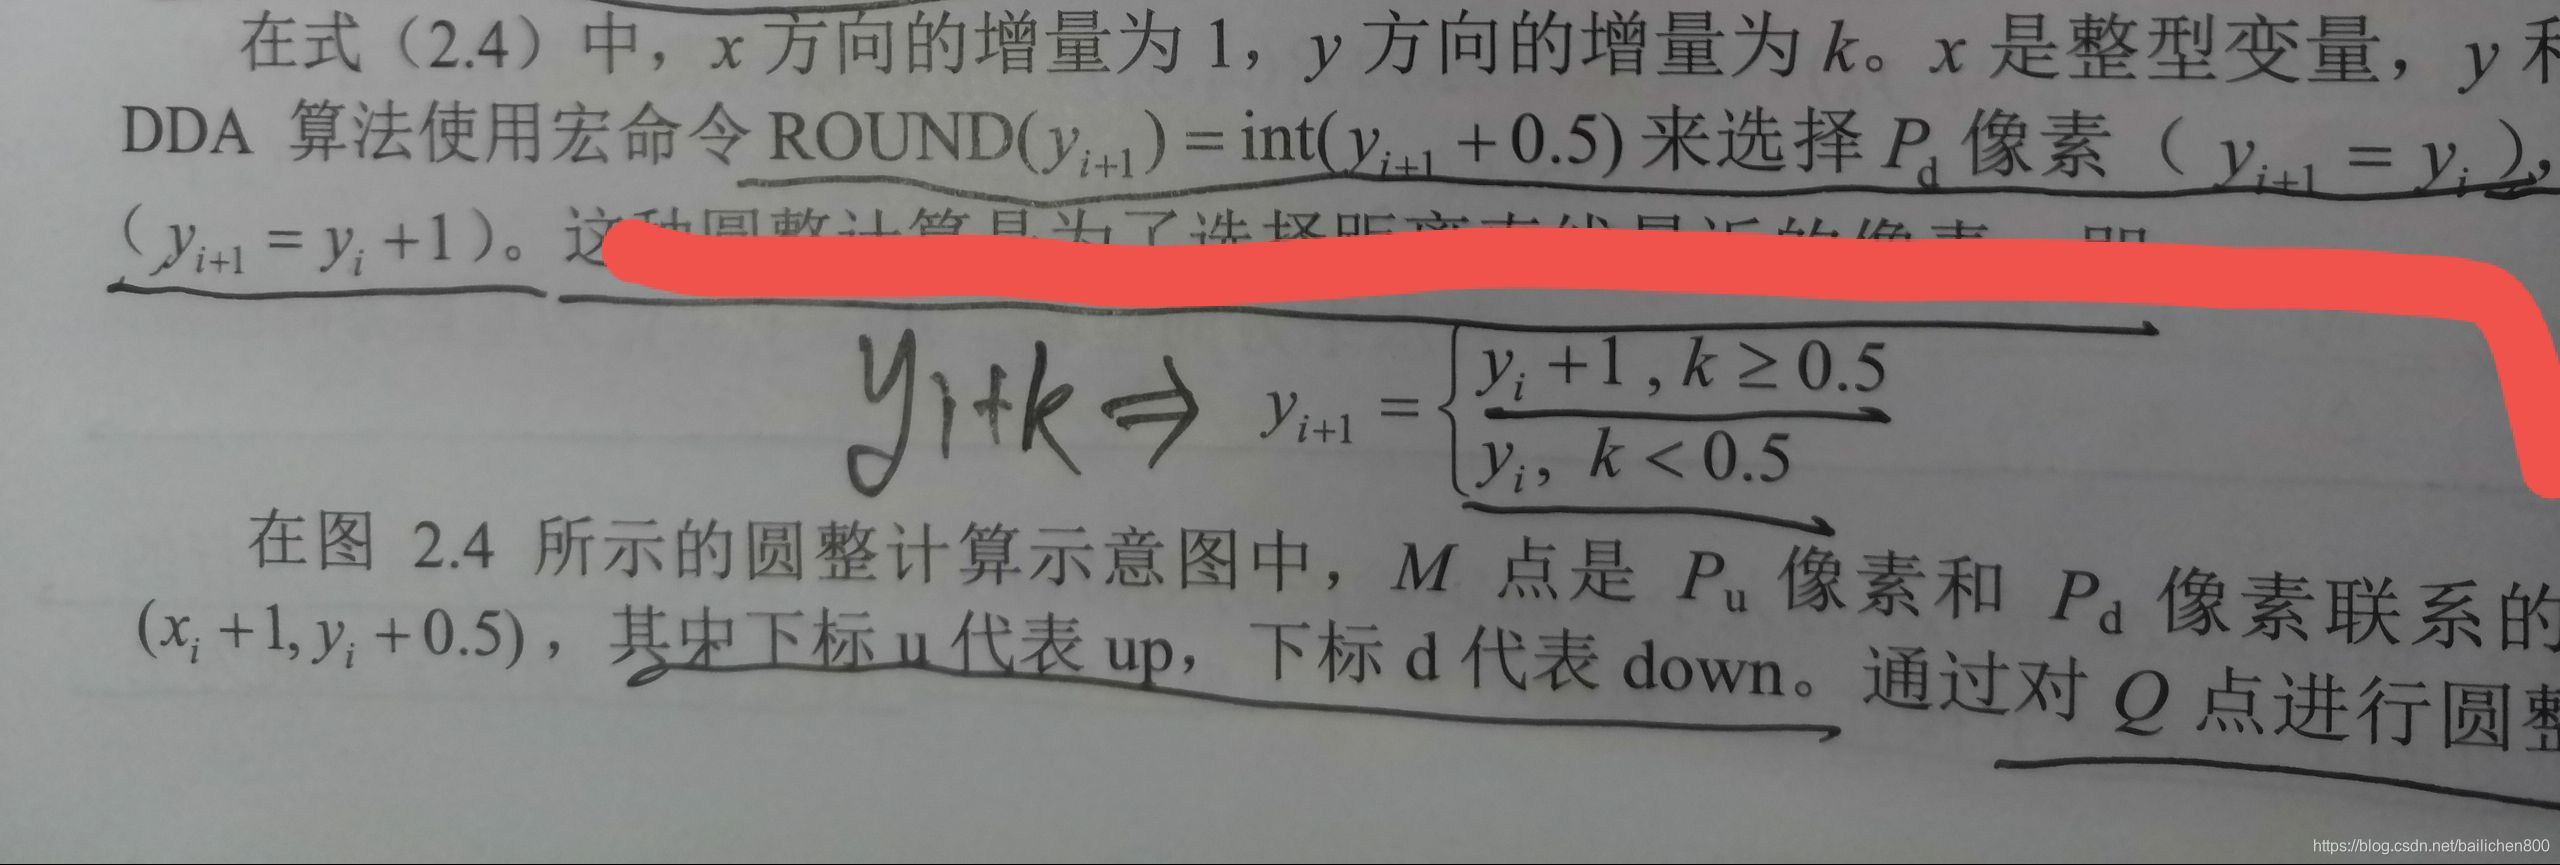 在式（2.4）中，x 方向的增量为 1，y 方向的增量为 k。x 是整型变量，y 和
DDA 算法使用宏命令 ROUND(y_{i+1}) = int(y_{i+1} + 0.5) 来选择 P_d 像素（ y_{i+1} = y_i ），
（ y_{i+1} = y_i + 1 ）。这种圆整计算是为了选择距离直线最近的像素，即
yi+k ⇒ y_{i+1} = { y_i + 1 , k ≥ 0.5
y_i， k < 0.5
在图 2.4 所示的圆整计算示意图中，M 点是 P_u 像素和 P_d 像素联系的
(x_i + 1, y_i + 0.5)，其中下标 u 代表 up，下标 d 代表 down。通过对 Q 点进行圆整
https://blog.csdn.net/bailichen800